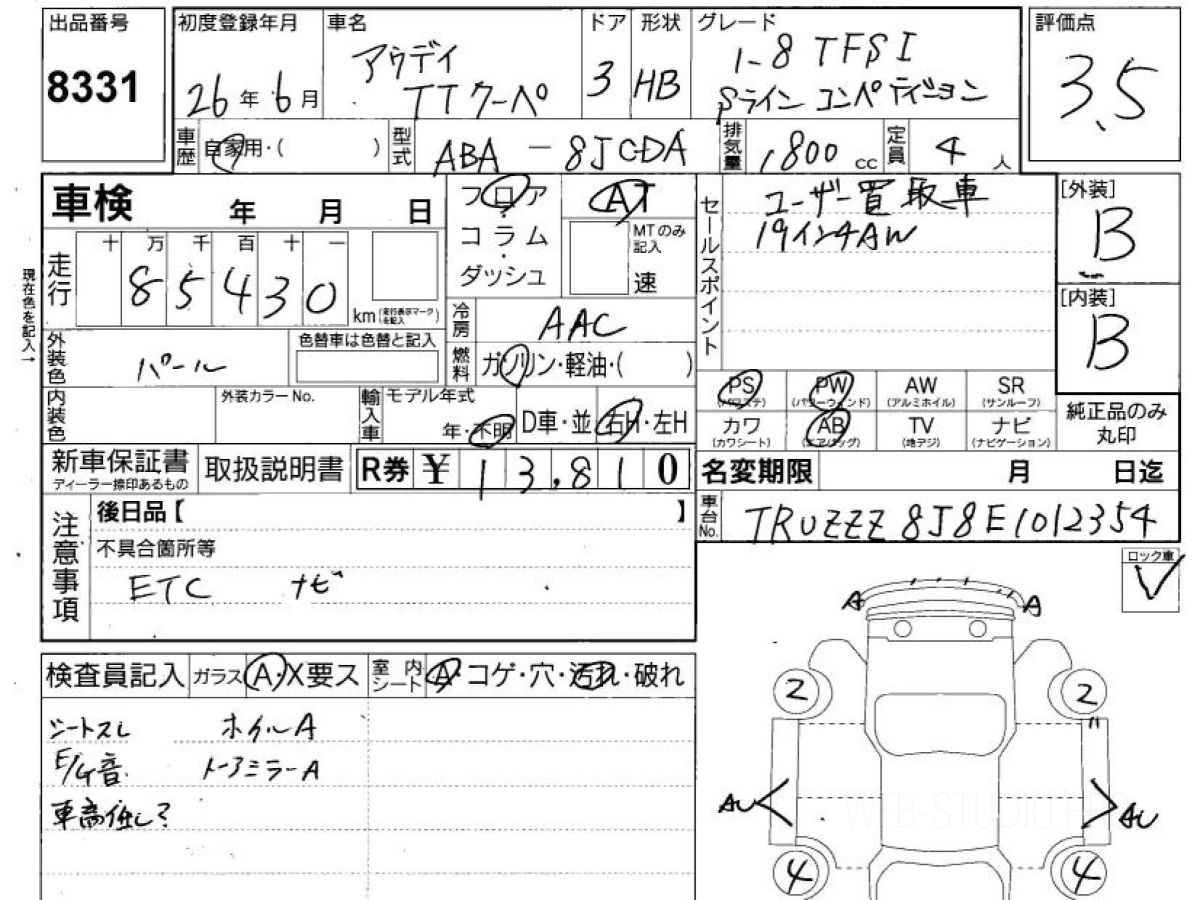 出品番号 初度登録年月 車名 ドア 形状 グレード 評価点
8331 26年6月 アウディ TTクーペ 3 HB 1.8 TFSI 3.5
Sラインコンペティション
車歴 自家用・( ) 型式 ABA-8JCDA 排気量 1800cc 定員 4人
車検 年 月 日
フロア
コラム
ダッシュ
AT
MTのみ記入
速
セールスポイント
ユーザー買取車
19インチAW
[外装]
B
[内装]
B
現在色を記入→
走行 十 万 千 百 十 一
85430 km (走行表示マークを記入)
冷房 AAC
外装色 パール 色替車は色替と記入
燃料 ガソリン・軽油・( )
PS (パワステ) PW (パワーウィンド) AW (アルミホイル) SR (サンルーフ)
カワ (カワシート) AB (エアバッグ) TV (地デジ) ナビ (ナビゲーション)
純正品のみ丸印
内装色 外装カラーNo. 輸入車 モデル年式 年・不明 D車・並 右H・左H
新車保証書 ディーラー捺印あるもの 取扱説明書 R券 ¥ 13,810
名変期限 月 日迄
車台No. TRUZZZ8J8E1012354
注意事項 後日品【 】
不具合箇所等
ETC ナビ
ロック車
A A
検査員記入 ガラス A・X要ス 室内シート A・コゲ・穴・汚れ・破れ
シートスレ ホイルA
E/G音 トーアミラーA
車高低し?
2 2
AU AU
4 4
WEB-STUDIO.H